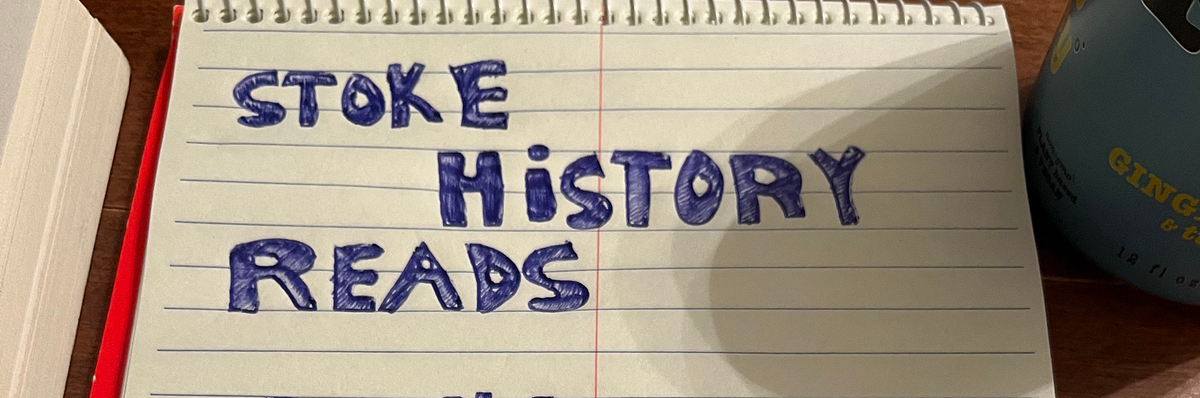 STOKE
HiSTORY
READS
GING
& t
12 fl os